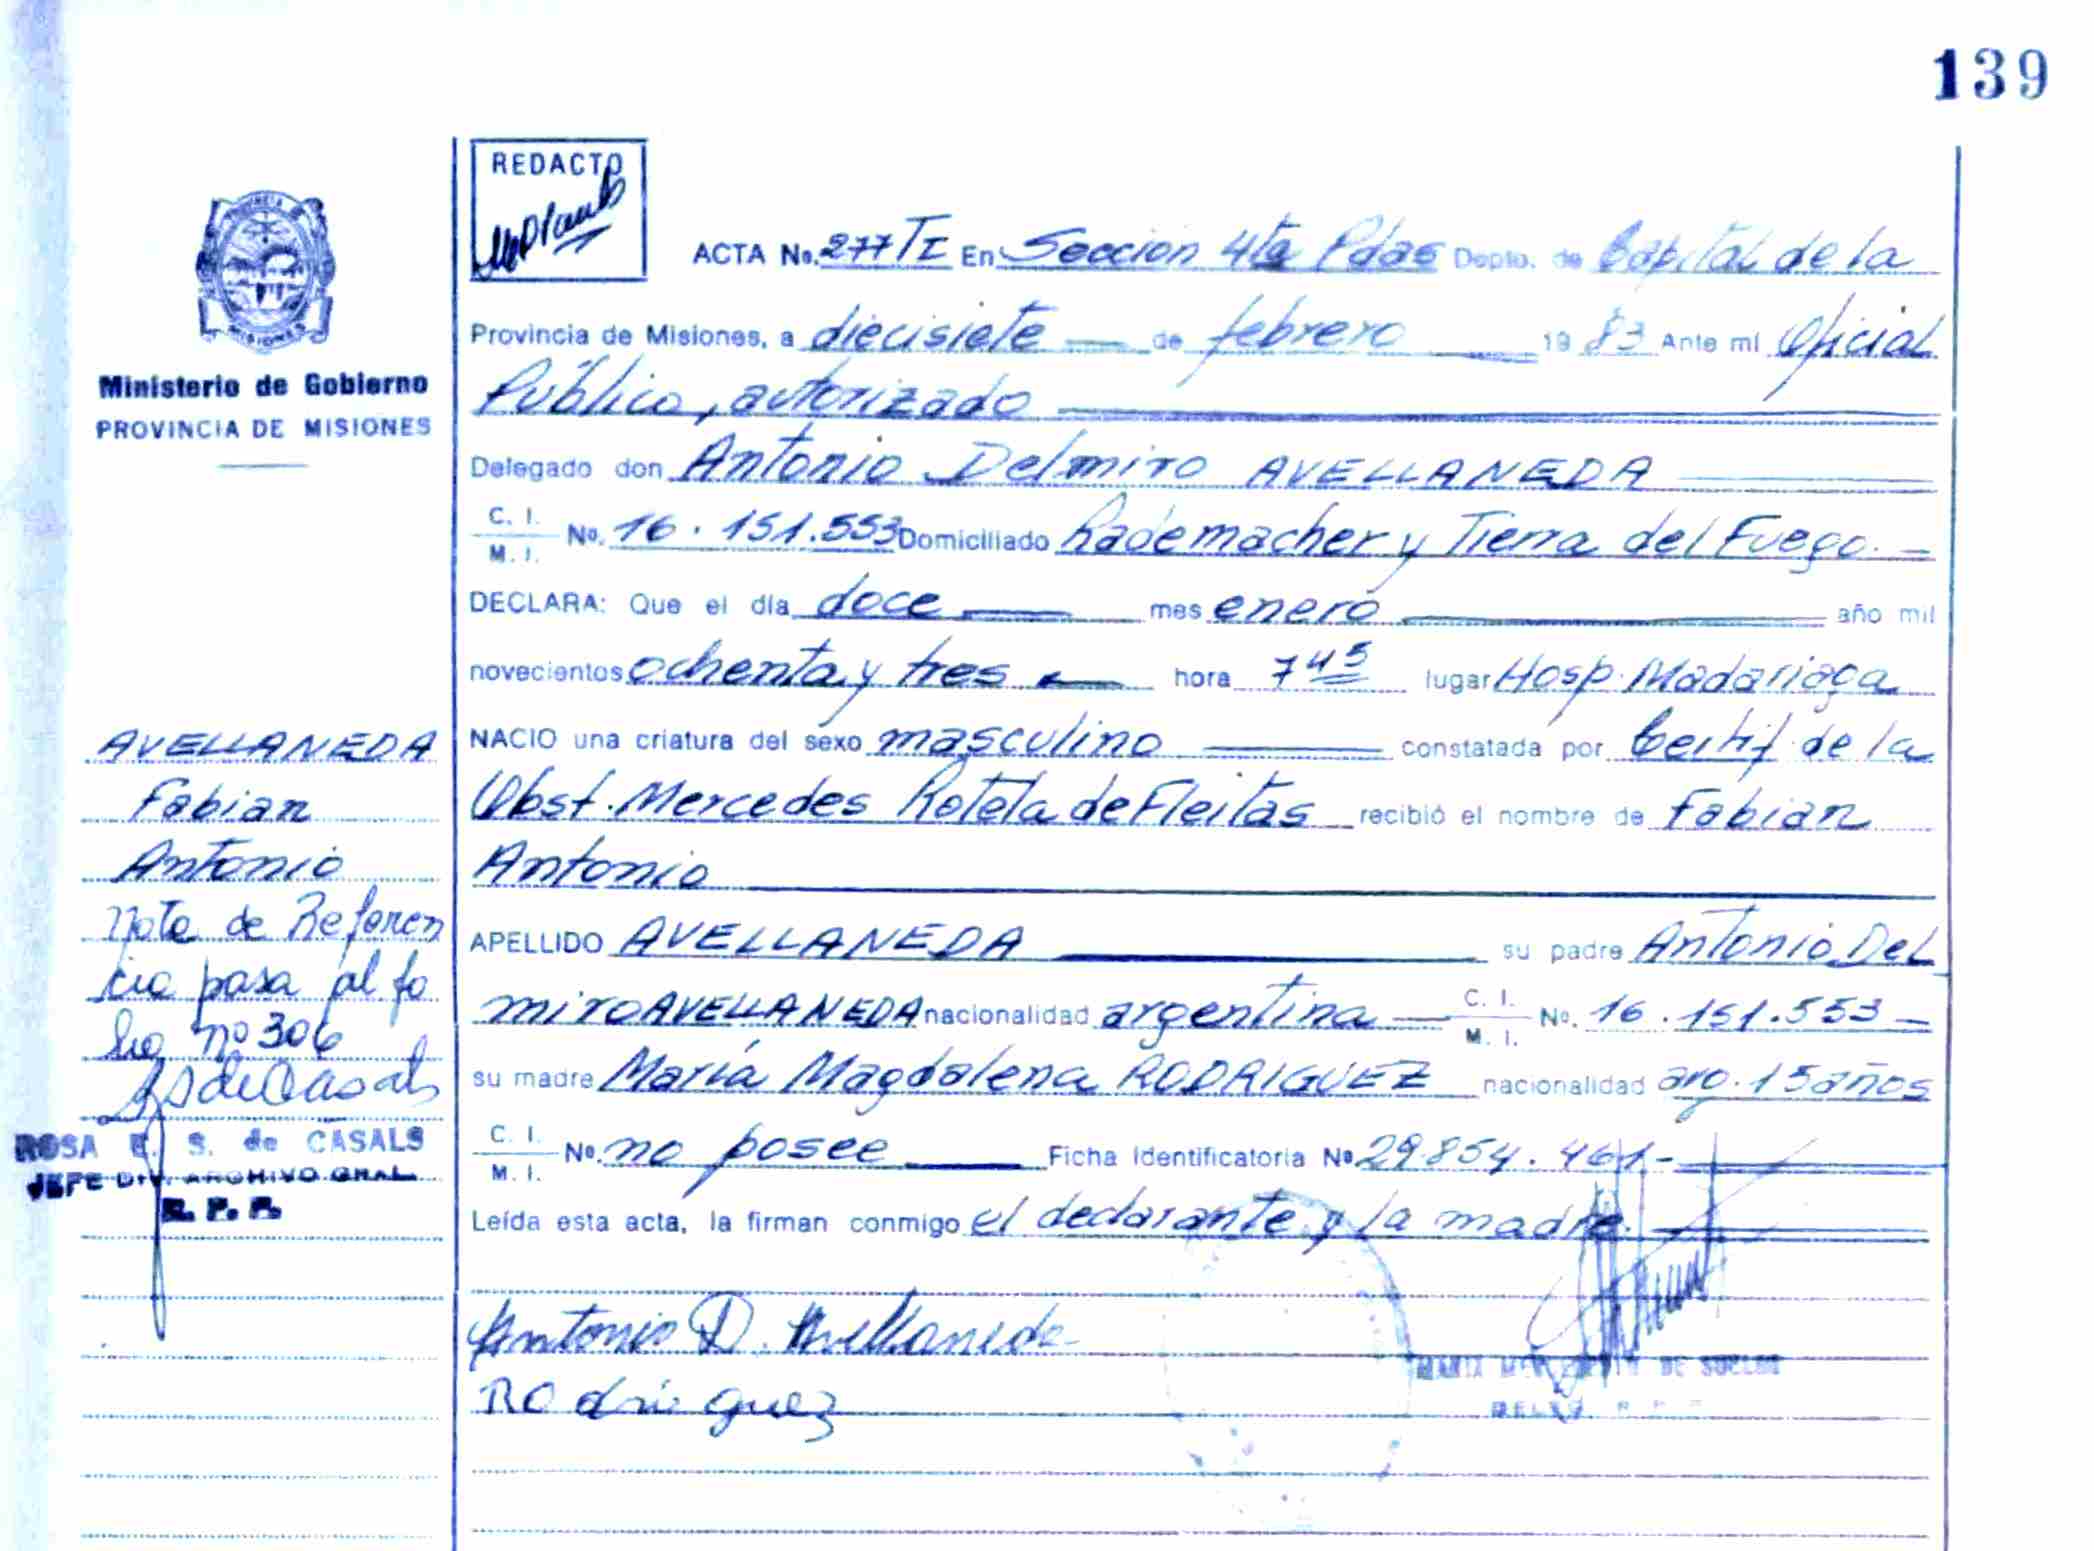 139
REDACTO
ACTA No. 277 TI En Sección 4ta Pdas Depto. de Capital de la
Provincia de Misiones, a diecisiete de febrero 19 83 Ante mi Oficial
Público, autorizado
Delegado don Antonio Delmiro AVELLANEDA
C. I. M. I. No. 16.151.553 Domiciliado Rademacher y Tierra del Fuego.
DECLARA: Que el día doce mes enero año mil
novecientos ochenta y tres hora 7 45 lugar Hosp. Madariaga
NACIO una criatura del sexo masculino constatada por Certif de la
Obst. Mercedes Rotela de Fleitas recibió el nombre de Fabian
Antonio
APELLIDO AVELLANEDA su padre Antonio Del
miro AVELLANEDA nacionalidad argentina C. I. M. I. No. 16.151.553
su madre María Magdalena RODRIGUEZ nacionalidad arg. 15 años
C. I. M. I. No. no posee Ficha Identificatoria No 29.854.461-
Leída esta acta, la firman conmigo el declarante y la madre.
Antonio D. Avellaneda
Rodriguez
DE SUELDO
Ministerio de Gobierno
PROVINCIA DE MISIONES
AVELLANEDA
Fabian
Antonio
Nota de Referen
cia pasa al fo
lio nº 306
ROSA E. S. de CASALS
JEFE DIV. ARCHIVO GRAL
R. P. P.